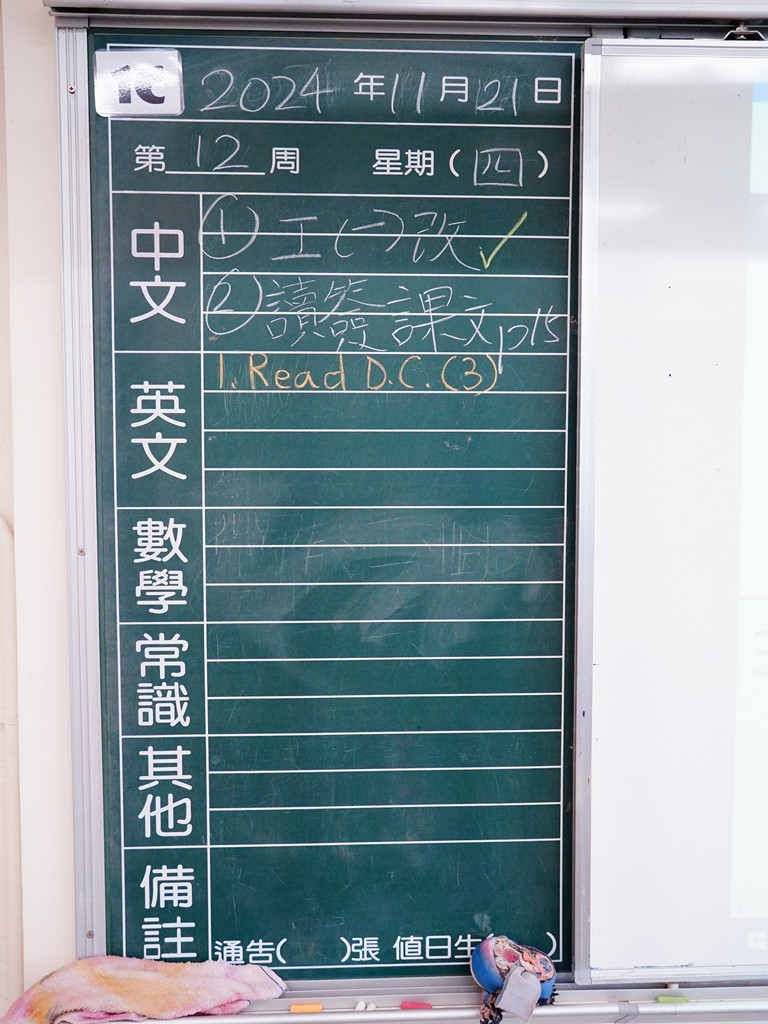 1C 2024 年 11 月 21 日
第 12 周 星期 ( 四 )
中文
① 工(一)改 ✓
② 讀簽課文p15
英文
1. Read D.C. (3)
數學
常識
其他
備註
通告( )張 值日生( )